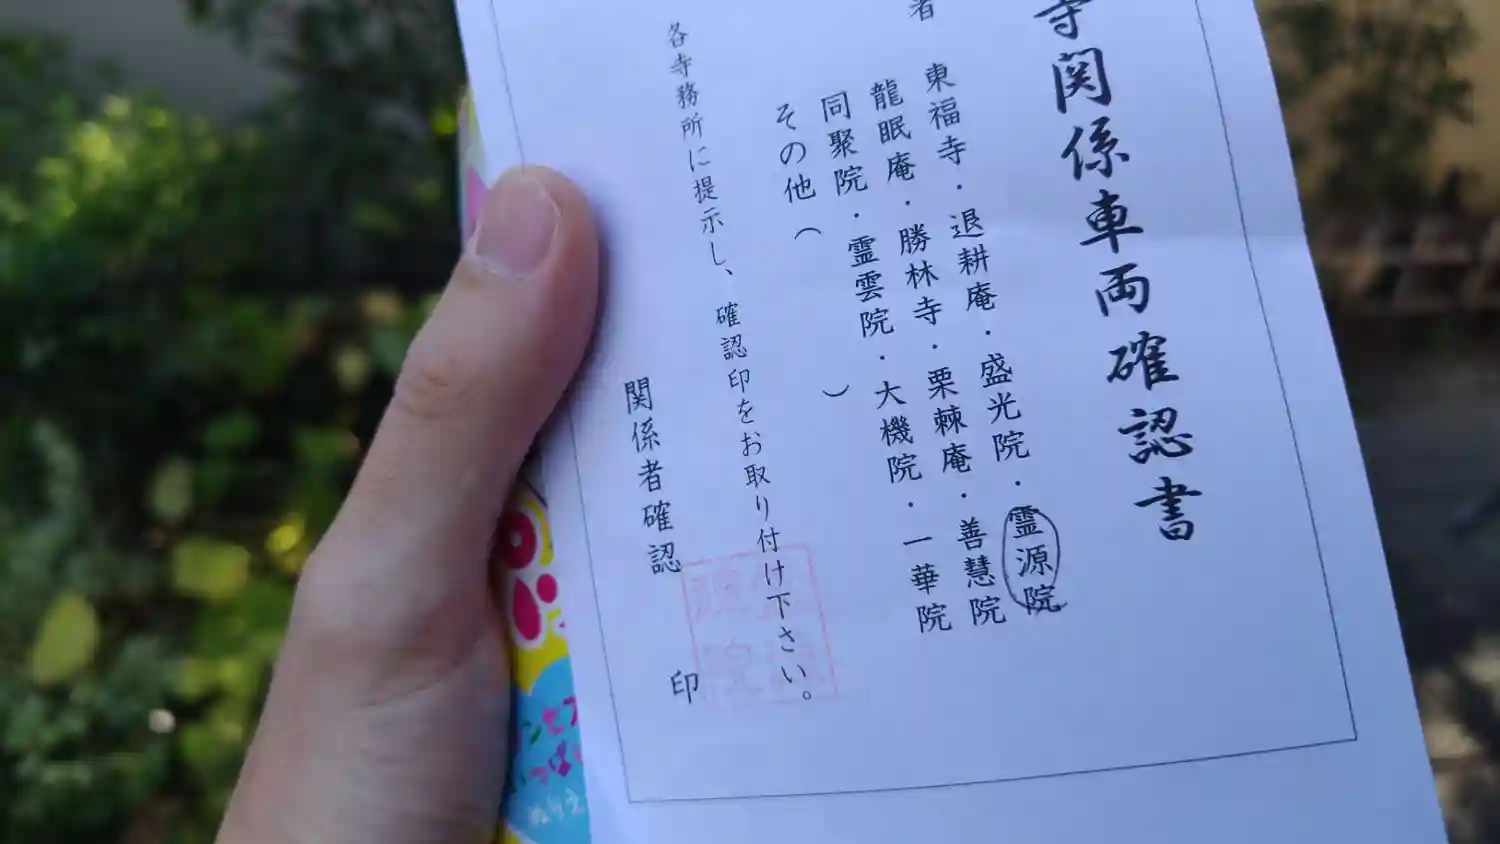 寺関係車両確認書
者
東福寺・退耕庵・盛光院・霊源院
龍眠庵・勝林寺・栗棘庵・善慧院
同聚院・霊雲院・大機院・一華院
その他（　　　　　）
各寺務所に提示し、確認印をお取り付け下さい。
関係者確認　　　印